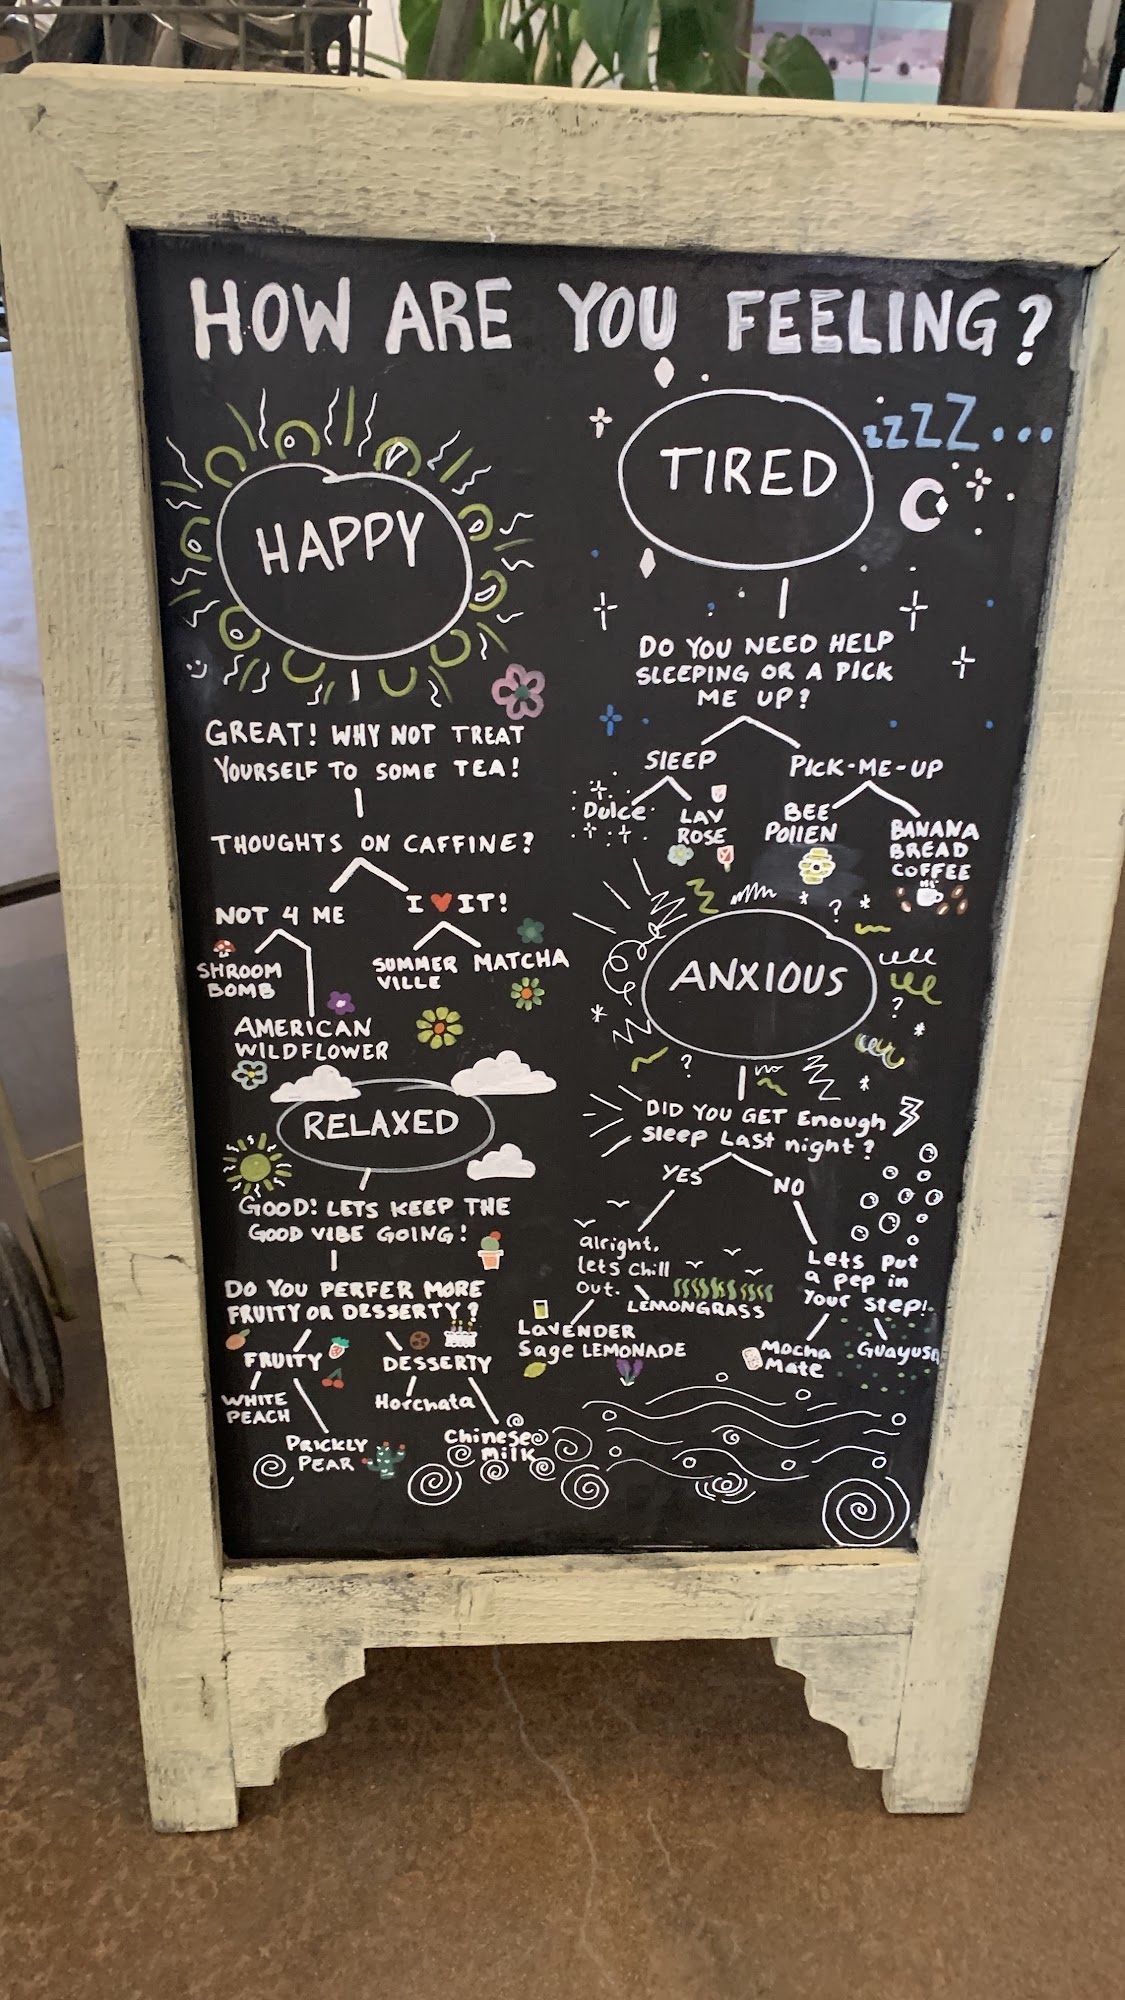 HOW ARE YOU FEELING?
HAPPY
GREAT! WHY NOT TREAT
YOURSELF TO SOME TEA!
THOUGHTS ON CAFFINE?
NOT 4 ME
I ❤ IT!
SHROOM
BOMB
AMERICAN
WILDFLOWER
SUMMER
VILLE
MATCHA
TIRED
zzZZ...
DO YOU NEED HELP
SLEEPING OR A PICK
ME UP?
SLEEP
PICK-ME-UP
Dulce
LAV
ROSE
BEE
POllEN
BANANA
BREAD
COFFEE
RELAXED
GOOD! LETS KEEP THE
GOOD VIBE GOING!
DO YOU PERFER MORE
FRUITY OR DESSERTY?
FRUITY
DESSERTY
WHITE
PEACH
PRICKLY
PEAR
Horchata
Chinese
Milk
ANXIOUS
DID YOU GET Enough
Sleep Last night?
YES
NO
alright,
lets chill
out.
LAVENDER
Sage LEMONADE
LEMONGRASS
Lets put
a pep in
your step!
Mocha
Mate
Guayusa